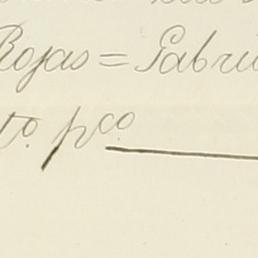 Rojas = Gabri
to. pco.